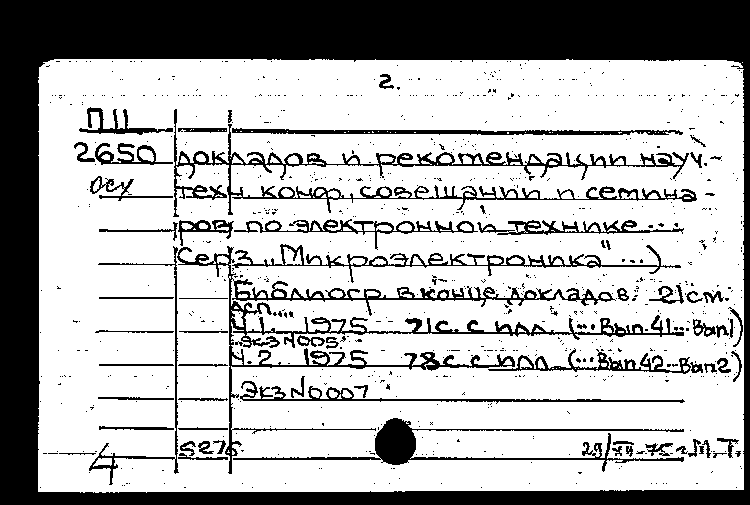 2.
П11
2650 докладов и рекомендации науч.-
осх техн. конф., совещании и семина-
ров по электронной технике ...
Сер3 „Микроэлектроника" ...)
Библиогр. в конце докладов. 21см.
дсп....
Ч.1. 1975 71с. с илл. (...Вып.41...Вып1)
Экз N005
Ч.2. 1975 78с. с илл (...Вып.42...Вып2)
Экз N0007
4 5276 29/XII-75 г. М. Т.